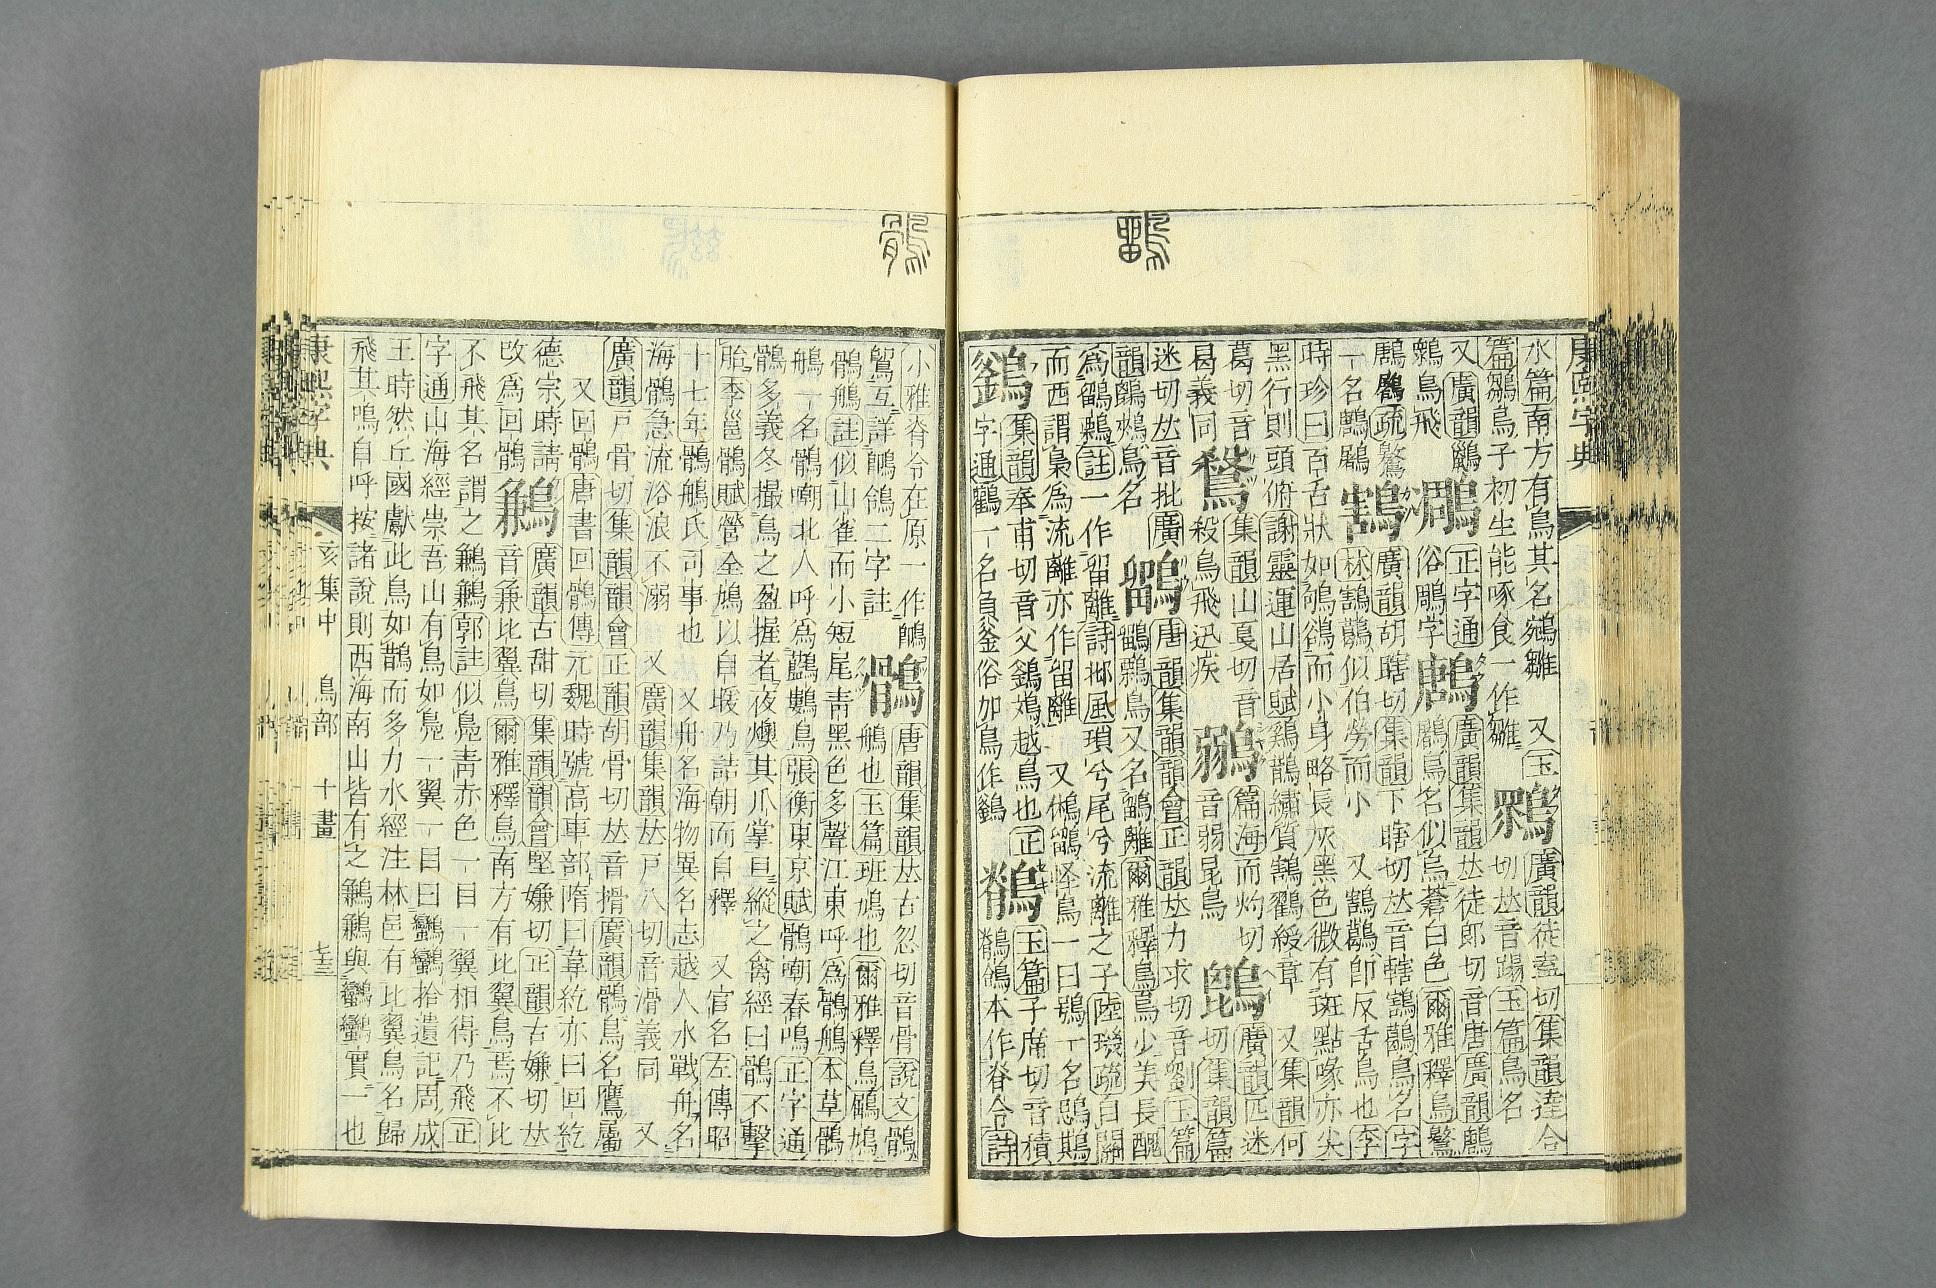 康熙字典
水篇南方有鳥其名鵷雛
又
玉
篇鶵鳥子初生能啄食一作雛
鸅
廣韻徒蓋切集韻達合
切𠀤音蹋玉篇鳥名
又廣韻鷉
鶏鳥飛
鷉
正字通
俗鵰字
鶶
廣韻集韻𠀤徒郎切音唐廣韻鶶
鷵鳥名似烏蒼白色爾雅釋鳥鷘
鶶鷵疏鷘
一名鶶鷵
鶷
廣韻胡瞎切集韻下瞎切𠀤音轄鶷鶡鳥名字
林鶷鶡似伯勞而小 又鶷鶡卽反舌鳥也李
時珍曰百舌狀如鴝鵒而小身略長灰黑色微有斑點喙亦尖
黑行則頭俯謝靈運山居賦鷄鵲繡質鶷鸐綬章 又集韻何
葛切音
曷義同
鶖
集韻山戛切音
殺鳥飛迅疾
鶸
篇海而灼切
音弱昆鳥
鷝
廣韻匹迷
切集韻篇
迷切𠀤音批廣
韻鷝鴀鳥名
鶹
唐韻集韻韻會正韻𠀤力求切音劉玉篇
鸓鶹鳥又名鶹離爾雅釋鳥鳥少美長醜
爲鶹鷅註一作留離詩邶風瑣兮尾兮流離之子陸璣疏自關
而西謂梟爲流離亦作留離 又鵂鶹怪鳥一曰鴞一名鵋鶀
鶔
集韻奉甫切音父鶔鴂越鳥也正
字通鶔一名負釜俗加鳥作鶔
鶺
玉篇子席切音積
鶺鴒本作脊令詩
小雅脊令在原一作鶺
鴒互詳鶺鴒二字註
鶻
唐韻集韻𠀤古忽切音骨說文鶻
鵃也玉篇班鳩也爾雅釋鳥鶌鳩
鶻鵃註似山雀而小短尾靑黑色多聲江東呼爲鶻鵃本草鶻
鵃一名鶻嘲北人呼爲鷜鷜鳥張衡東京賦鶻嘲春鳴正字通
鶻多義冬撮鳥之盈握者夜燠其爪掌旦縱之禽經曰鶻不擊
胎李邕鶻賦營全鳩以自暖乃詰朝而自釋 又官名左傳昭
十七年鶻鵃氏司事也 又舟名海物異名志越人水戰舟名
海鶻急流浴浪不溺 又廣韻集韻𠀤戶八切音滑義同 又
廣韻戸骨切集韻韻會正韻胡骨切𠀤音搰廣韻鶻鳥名鷹屬
又回鶻唐書回鶻傳元魏時號高車部隋曰韋紇亦曰回紇
德宗時請
改爲回鶻
鶼
廣韻古甜切集韻韻會堅嫌切正韻古嫌切𠀤
音兼比翼鳥爾雅釋鳥南方有比翼鳥焉不比
不飛其名謂之鶼鶼郭註似鳧靑赤色一目一翼相得乃飛正
字通山海經崇吾山有鳥如鳧一翼一目曰䲰䲰拾遺記周成
王時然丘國獻此鳥如鵲而多力水經注林邑有比翼鳥名歸
飛其鳴自呼按諸說則西海南山皆有之鶼鶼與䲰䲰實一也
康熙字典
亥集中
鳥部
十畫
七三